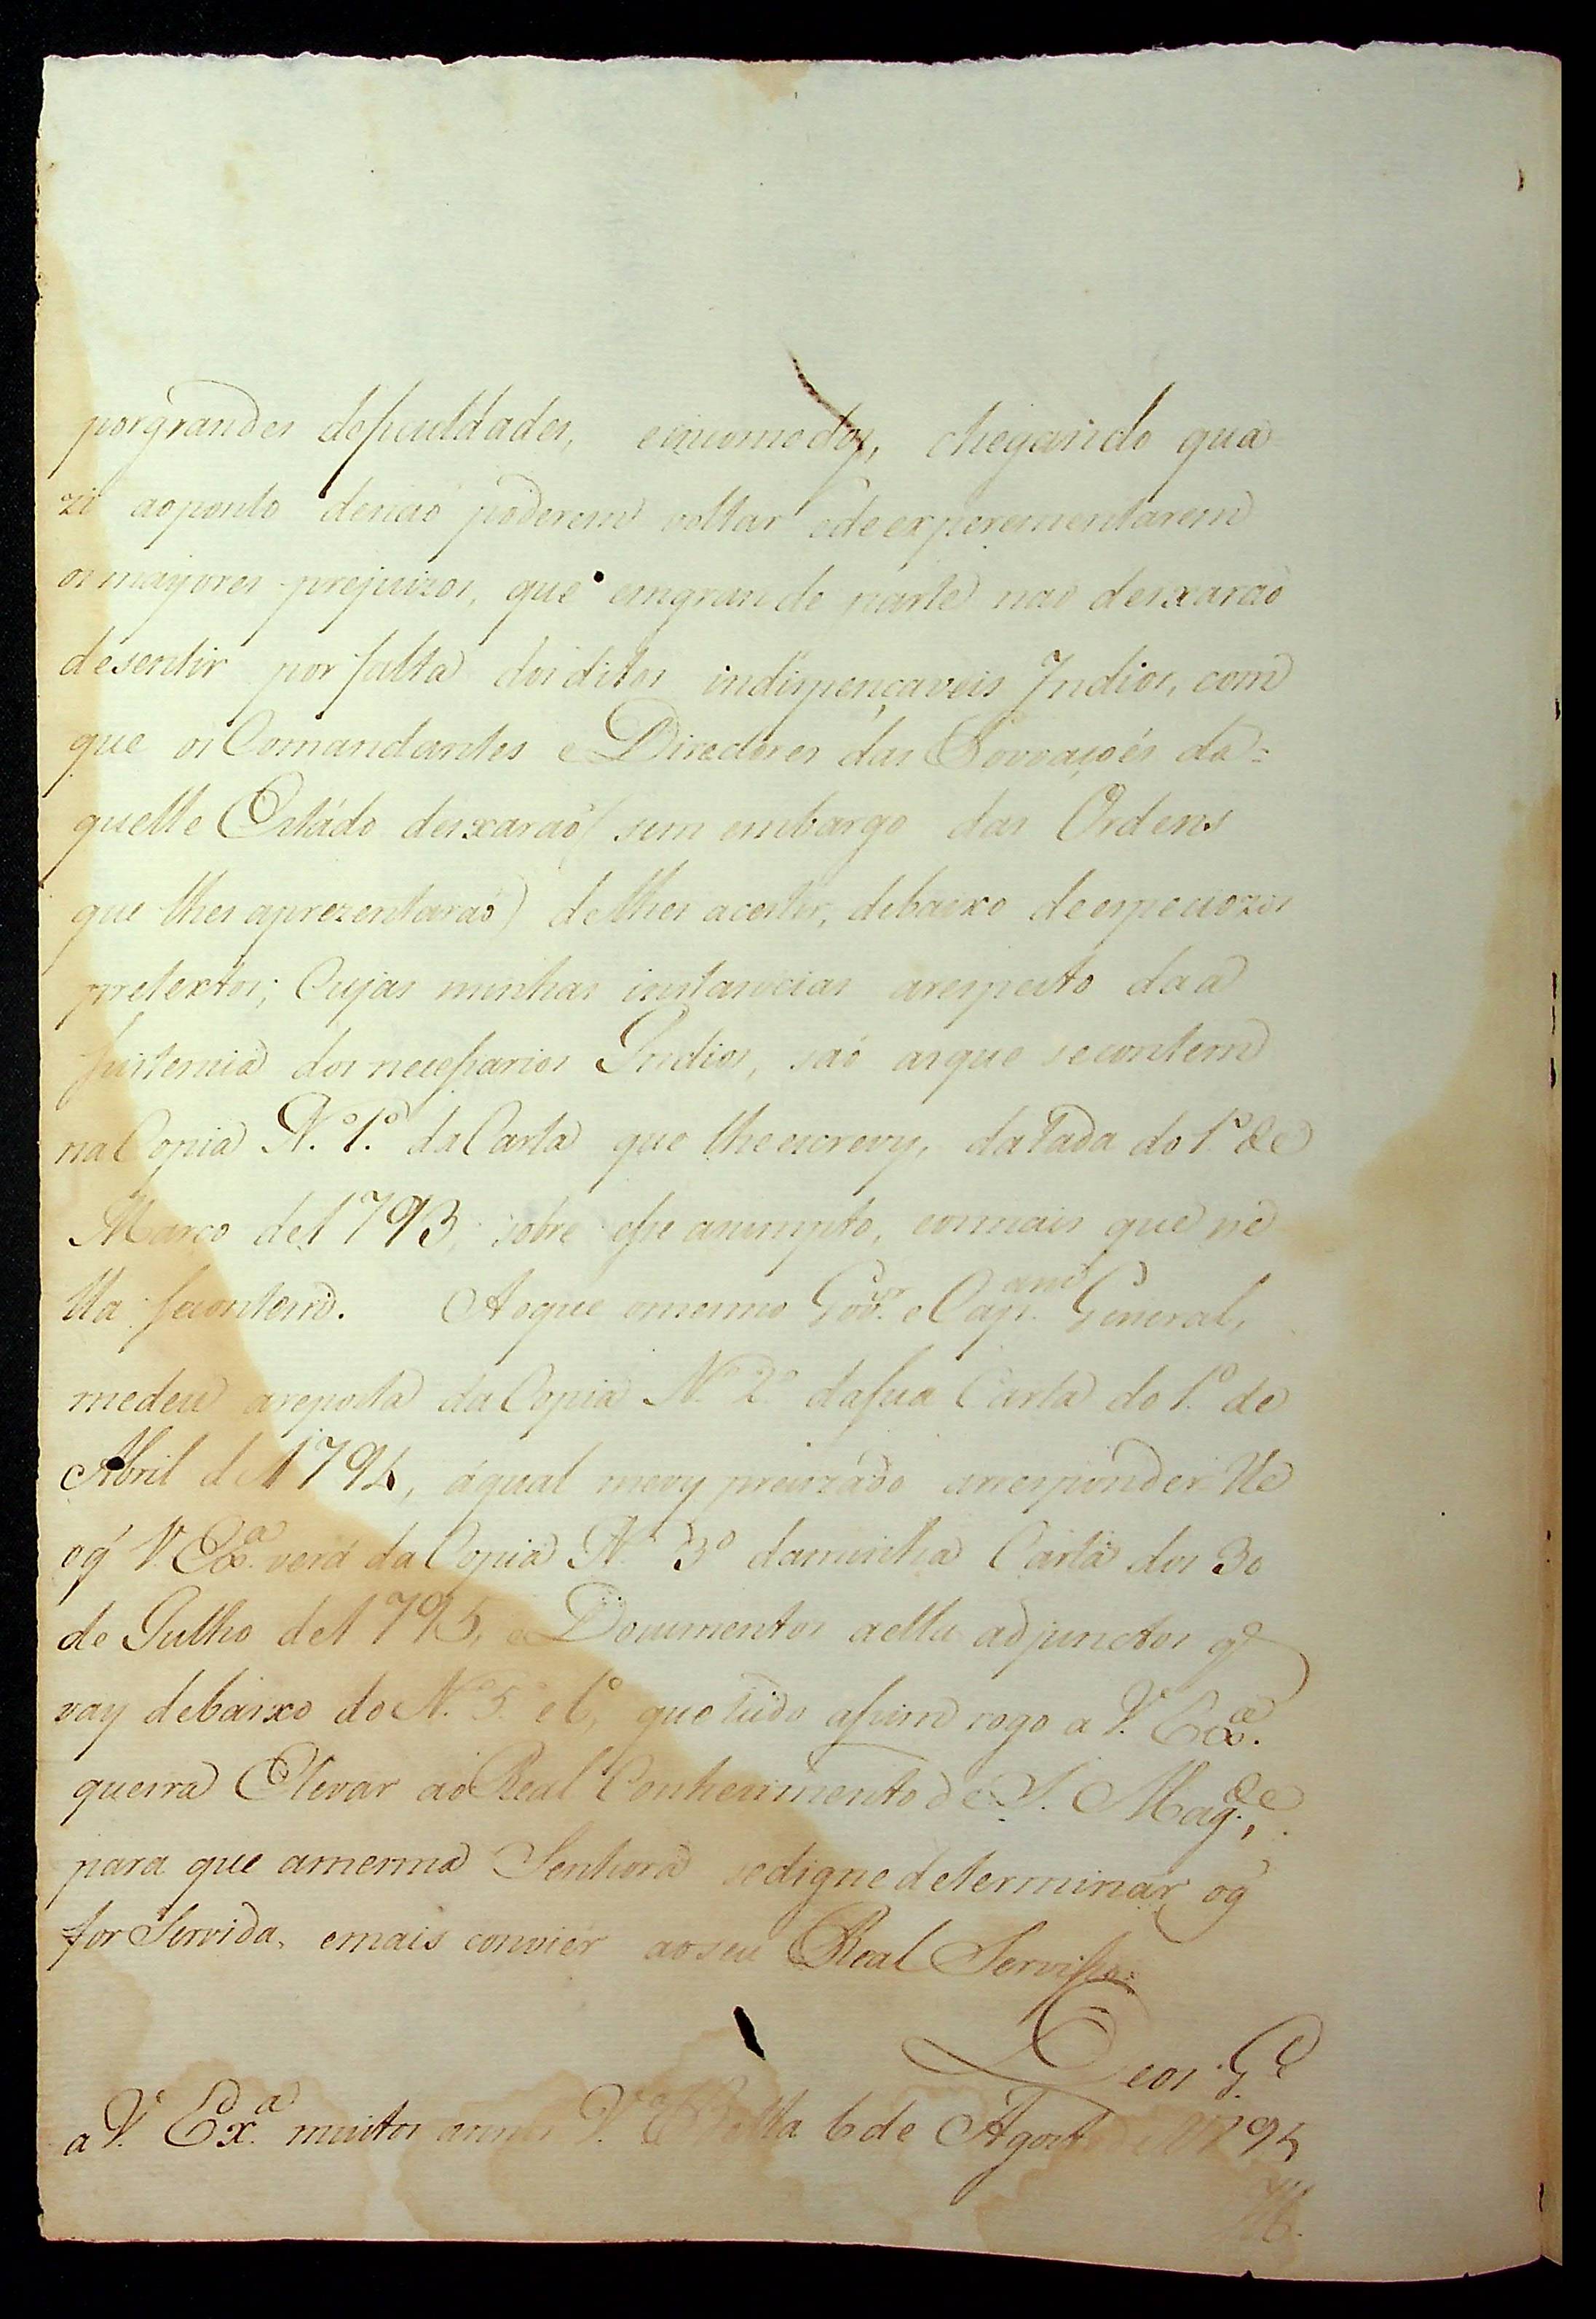 por grandes deficuldades, e incomodos, chegando qua=
zi ao ponto de naõ poderem voltar e de experementarem
os mayores prejuizos, que em grande parte naõ deixaraõ
de sentir por falta dos ditos indispençaveis Indios, com
que os Comandantes e Directores das Povoaçoẽs da=
quelle Estádo deixaraõ (sem embargo das Ordens
que lhes aprezentaraõ) de lhes acestir, debaixo de especiozos
pretextos; Cujas minhas instancias a respeito da a
sistencia dos necessarios Indios, saõ as que se contem
na Copia N.º 1.º da Carta que lhe escrevy, datada do 1.º de
Março de 1793, sobre esse asumpto, e o mais que ne
lla se contem. Ao que o mesmo Gov.or e Cap.am General,
me deu a reposta da Copia N.º 2.º da sua Carta do 1.º de
Abril de 1794, á qual me vy precizádo a responder lhe
o q̃ V. Ex.a verá da Copia N.º 3.º da minha Carta dos 30
de Julho de 1795, e Documentos a ella adjunctos q̃
vay debaixo do N.º 5.º e 6.º, que tudo assim rogo a V. Ex.a
queira Elevar ao Real Conhecimento de S. Mag.de,
para que a mesma Senhora se digne determinar o q̃
for Servida, e mais convier ao seu Real Servisso=
Deos G.e
a V. Ex.a muitos annos V.a Bella 6 de Agosto de 1795